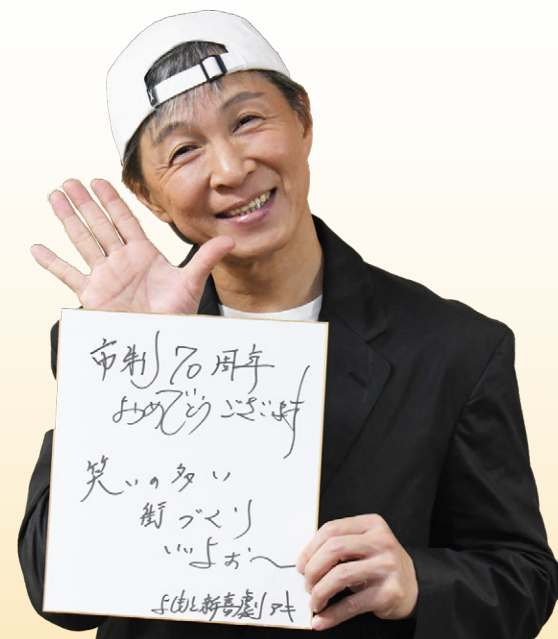 市制70周年
おめでとうございます
笑いの多い
街づくり
いいよぉ〜
よしもと新喜劇 アキ